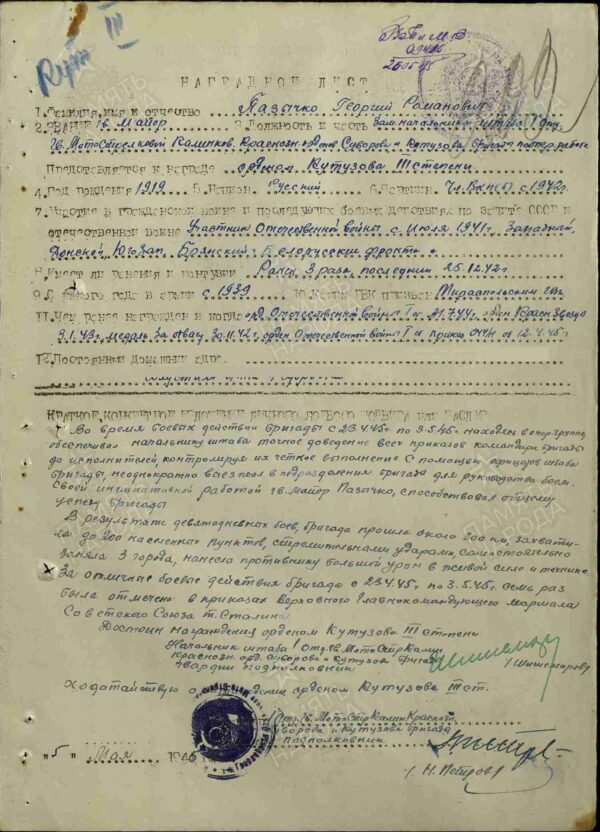 НАГРАДНОЙ ЛИСТ
1. Фамилия, имя и отчество Пазычко Георгий Романович
2. Звание гв. Майор 3. Должность и часть Зам. начальника штаба 1 отд.
Гв. МотоСтрелковой Калинков. Краснозн. орденов Суворова и Кутузова бригады по опер. работе
Представляется к награде орденом Кутузова III степени
4. Год рождения 1919 5. Национ. Русский 6. Партийн. Чл. ВКП(б) с 1942г.
7. Участие в гражданской войне и последующих боевых действиях по защите СССР и
отечественной войне Участник Отечественной войны с Июля 1941г. Западный,
Донской, Юго Зап., Брянский и Белорусский фронты
8. Имеет ли ранения и контузии Ранен 3 раза, последний 25.12.42г.
9. С какого года в армии с 1939 10. Каким РВК призван
11. Чем ранее награжден и когда орд. Отечественной война I ст. 21.7.44г. орден Красн. Звезда
3.1.43г. медаль За отвагу 30.11.42г. орден Отечественной война I ст. приказ от 12.4.45г.
12. Постоянный домашний адрес
КРАТКОЕ, КОНКРЕТНОЕ ИЗЛОЖЕНИЕ ЛИЧНОГО БОЕВОГО ПОДВИГА ИЛИ ЗАСЛУГ
Во время боевых действий бригады с 23.4.45г. по 3.5.45г. находясь в опергруппе,
обеспечивал начальнику штаба точное доведение всех приказов командира бригады
до исполнителей, контролируя их четкое выполнение с помощью офицеров штаба
бригады, неоднократно выезжал в подразделения бригады для руководства боем.
Своей инициативной работой гв. Майор Пазычко, способствовал общему
успеху бригады
В результате девятидневных боев, бригада прошла около 200 км, захвати-
ла до 200 населенных пунктов, стремительными ударами, самостоятельно
заняла 3 города, нанесла противнику большой урон в живой силе и технике
За отличные боевые действия бригада с 23.4.45г. по 3.5.45г. семь раз
была отмечена в приказах Верховного Главнокомандующего маршала
Советского Союза т. Сталина
Достоин награждения орденом Кутузова III степени
Начальник штаба 1 отд. Гв. МотоСтр Калинк.
Краснозн. орд. Суворова и Кутузова бригады
гвардии подполковник
Ходатайствую о награждении орденом Кутузова III ст.
1 Отд. Гв. МотоСтр Калин. Краснозн.
Суворова и Кутузова бригады
Подполковник
"5" Мая 1945
/ Н. Петров /